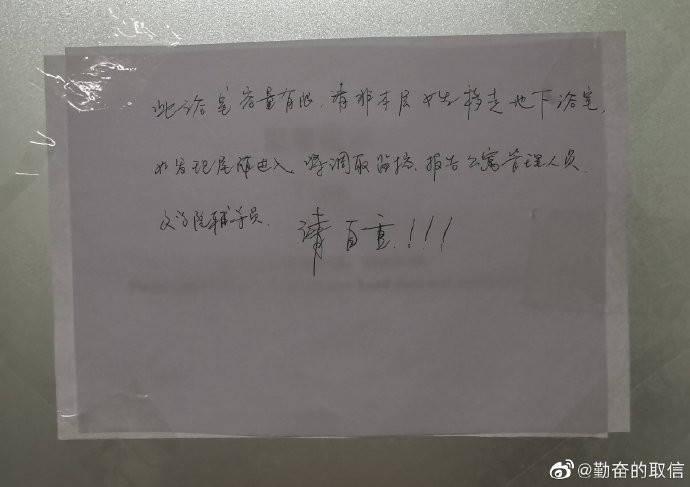 此浴室容量有限,请非本层女生移走地下浴室,
如发现尾随进入,将调取监控,报告公寓管理人员
及学院辅导员. 请自重!!!
@勤奋的取信